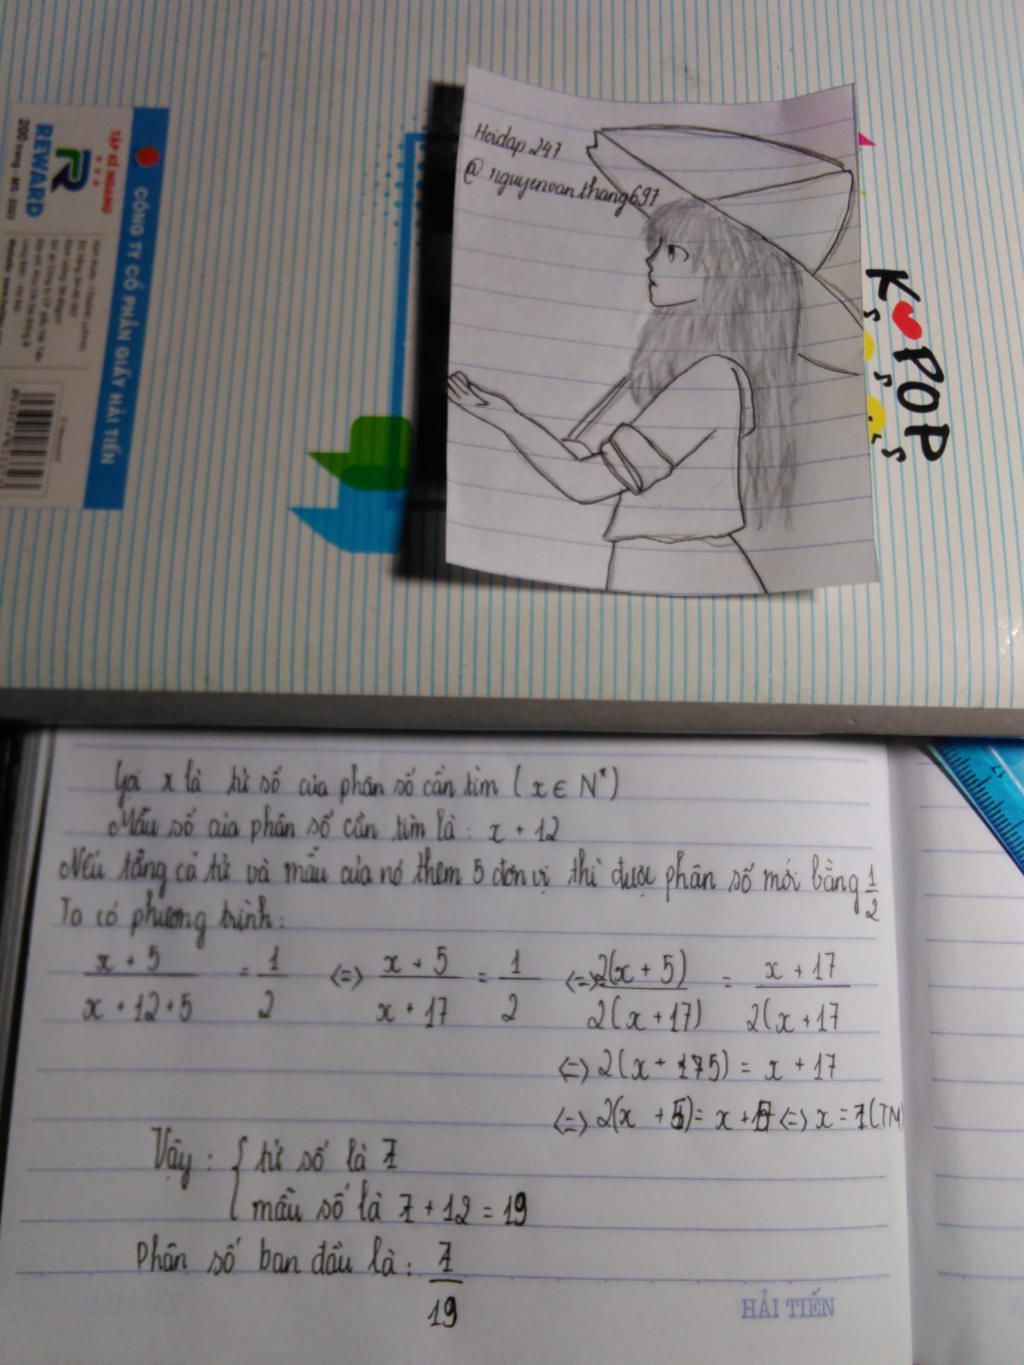 Hoidap 247
@ nguyenvanthang697
K POP
CÔNG TY CỔ PHẦN GIẤY HẢI TIẾN
TẬP KẺ NGANG
REWARD
200 trang
Gọi x là tử số của phân số cần tìm (x ∈ N*)
Mẫu số của phân số cần tìm là: x + 12
Nếu tăng cả tử và mẫu của nó thêm 5 đơn vị thì được phân số mới bằng 1/2
Ta có phương trình:
(x + 5)/(x + 12 + 5) = 1/2 <=> (x + 5)/(x + 17) = 1/2 <=> 2(x + 5)/2(x + 17) = (x + 17)/2(x + 17
<=> 2(x + 175) = x + 17
<=> 2(x + 5) = x + 17 <=> x = 7 (TM)
Vậy: { tử số là 7
mẫu số là 7 + 12 = 19
Phân số ban đầu là: 7/19
HẢI TIẾN